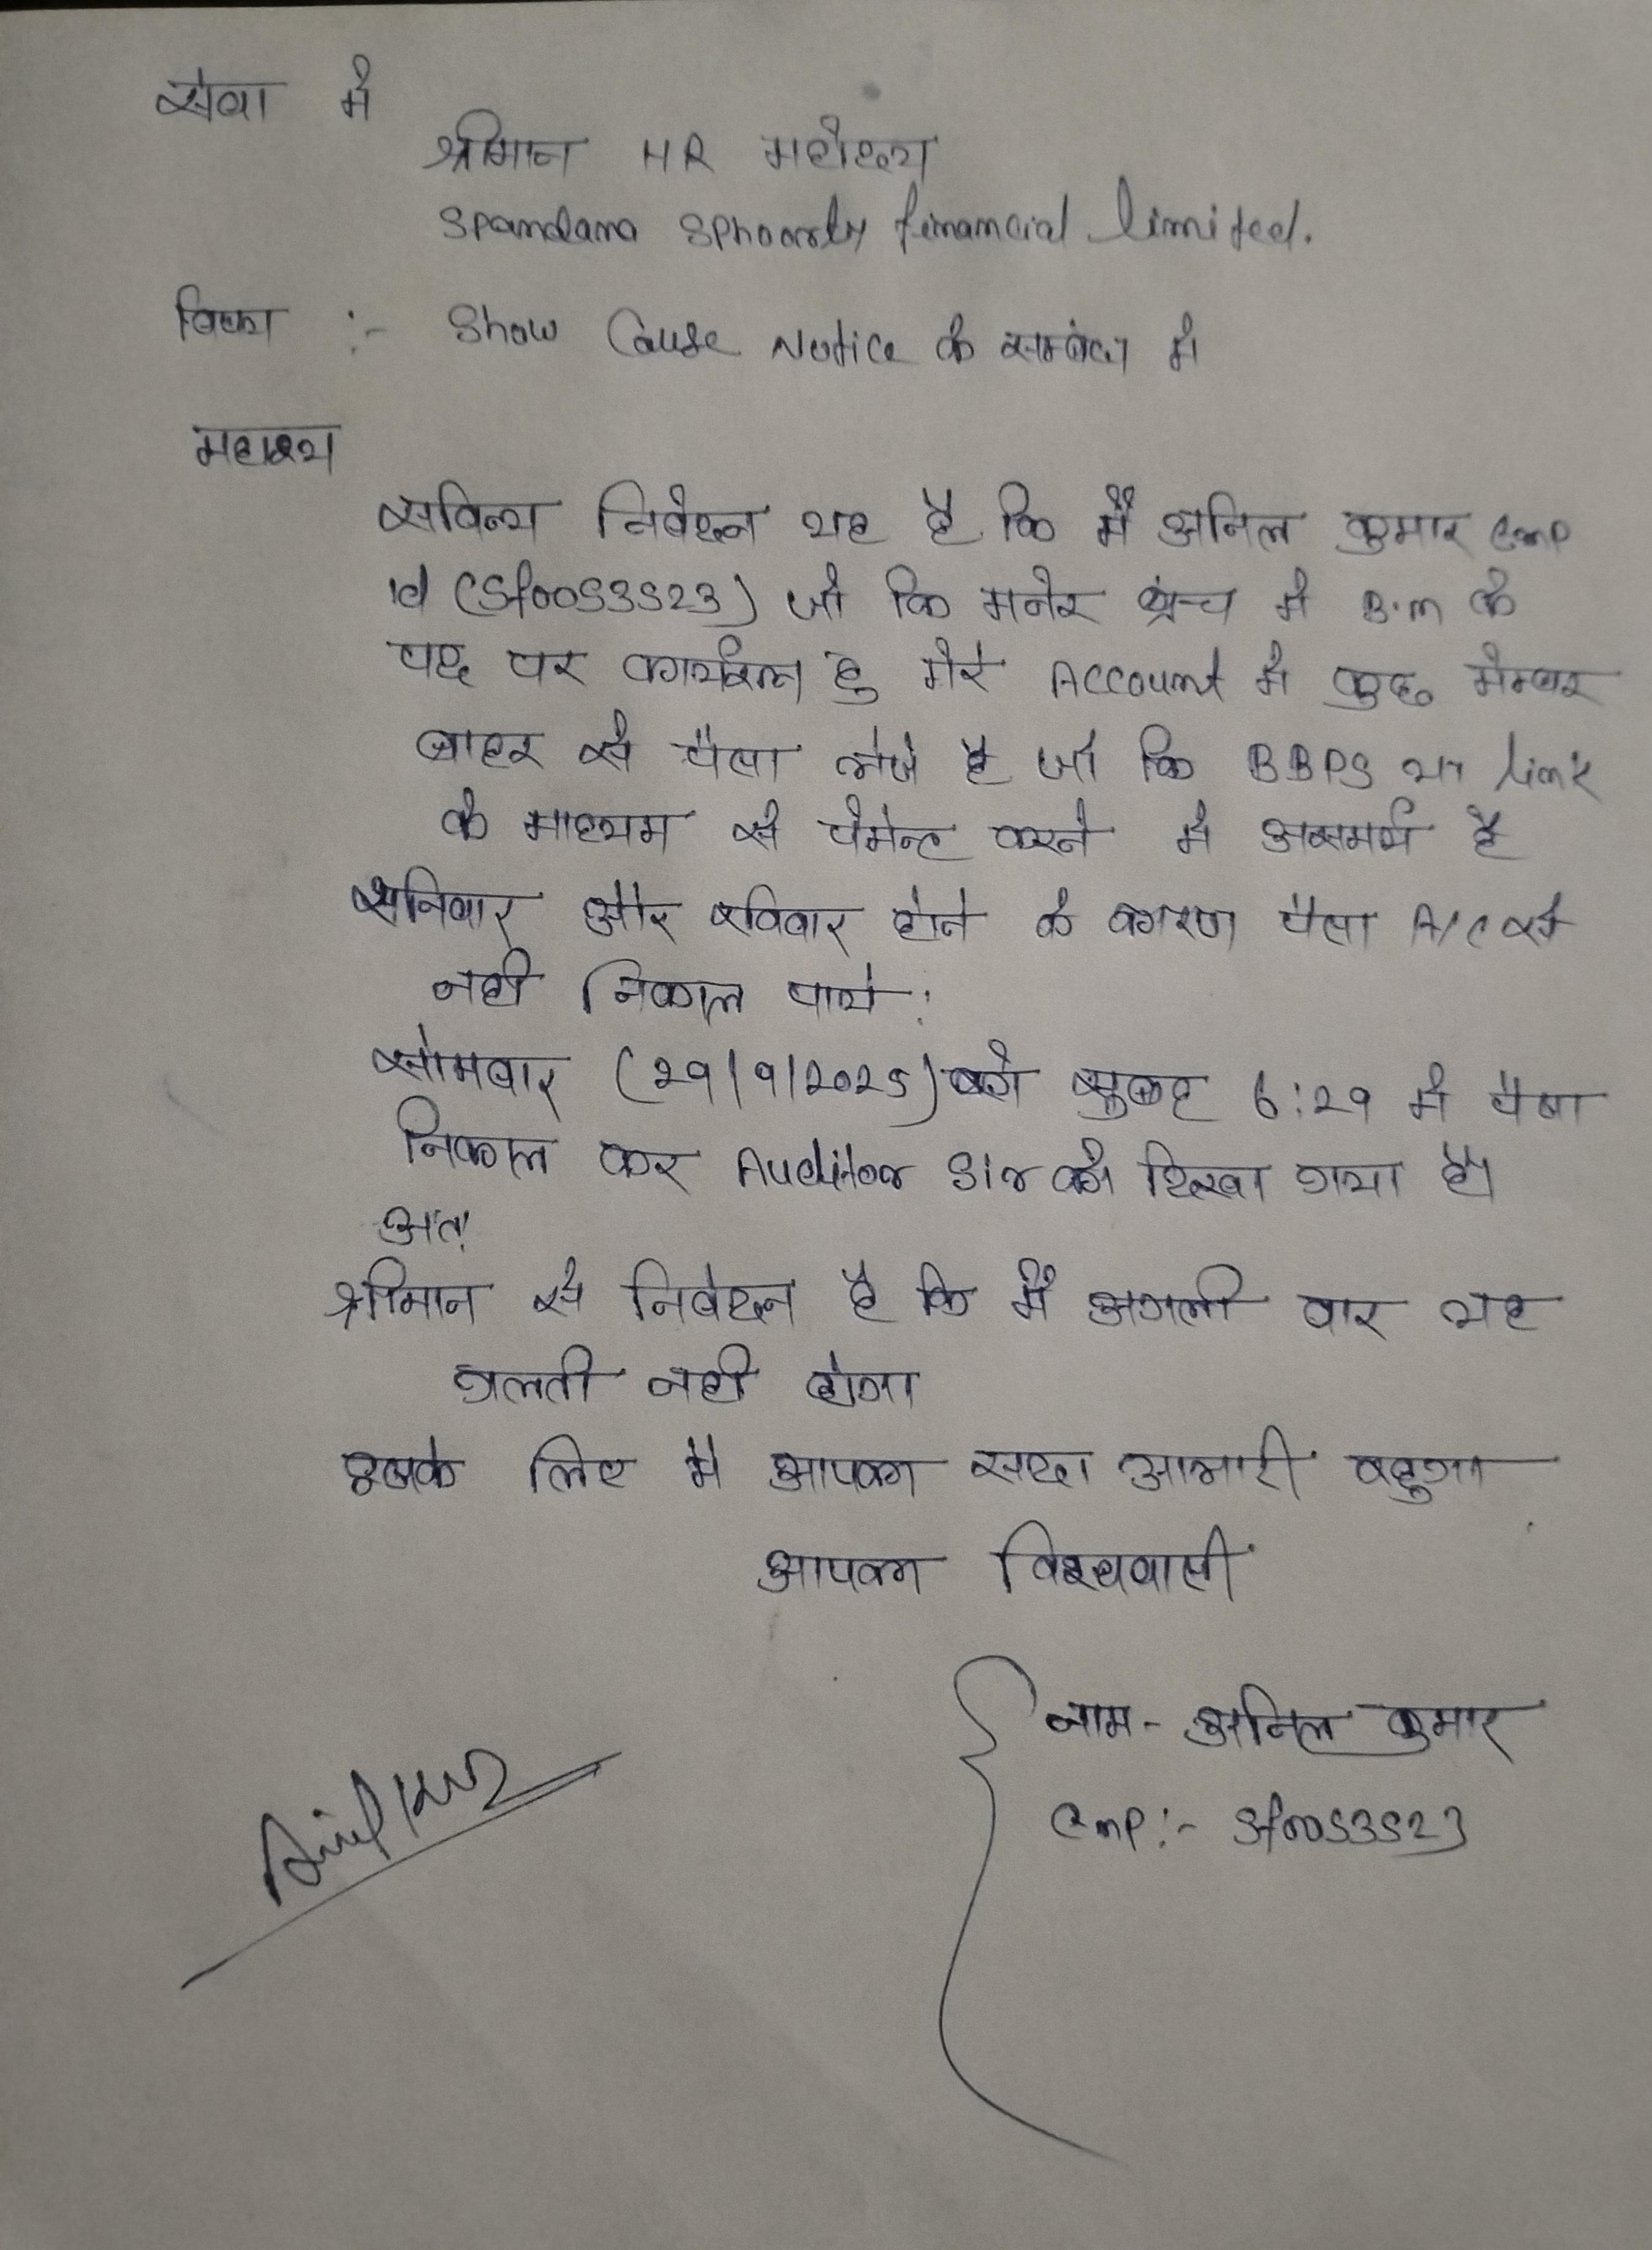 सेवा में
श्रीमान HR महोदय
Spandana Sphoorty financial limited.
विषय :- Show Cause Notice के सम्बंध में
महाशय
सविन्य निवेदन यह है कि मैं अनिल कुमार Emp
id (Sf0053523) जो कि मनेर ब्रांच में B.m के
पद पर कार्यरत हु मेरे Account में कुछ मेम्बर
बाहर से पैसा भेजे है जो कि BBPS या link
के माध्यम से पेमेन्ट करने में असमर्थ है
सनिवार और रविवार होने के कारण पैसा A/c से
नही निकाल पाये।
सोमवार (29/9/2025) को सुबह 6:29 में पैसा
निकाल कर Auditor Sir को दिखा गया है।
अतः
श्रीमान से निवेदन है कि मैं अगली बार यह
गलती नही होगा
इसके लिए मै आपका सदा आभारी रहुगा
आपका विश्वासी
नाम - अनिल कुमार
Emp :- Sf0053523